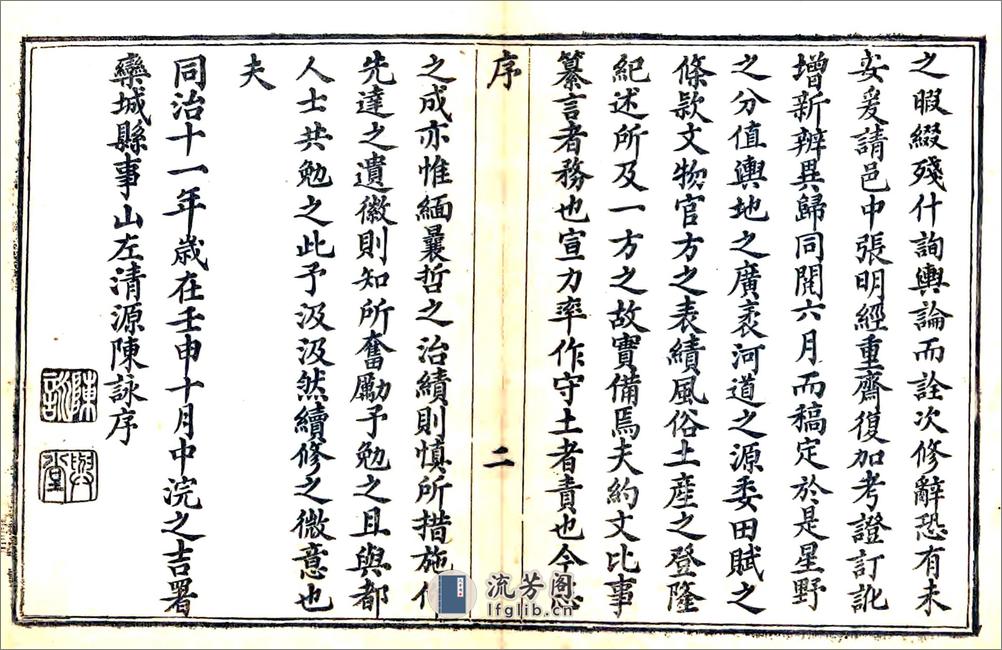 之暇綴殘什詢輿論而詮次修辭恐有未
妥爰請邑中張明經重齋復加考證訂訛
增新辨異歸同閱六月而稿定於是星野
之分值輿地之廣袤河道之源委田賦之
條欵文物官方之表績風俗土產之登隆
紀述所及一方之故實備焉夫約文比事
纂言者務也宣力率作守土者責也今
序
二
之成亦惟緬曩哲之治績則慎所措施
先達之遺徽則知所奮勵予勉之且與都
人士共勉之此予汲汲然續修之微意也
夫
同治十一年歲在壬申十月中浣之吉署
欒城縣事山左清源陳詠序
陳詠
流芳阁
lfglib.cn